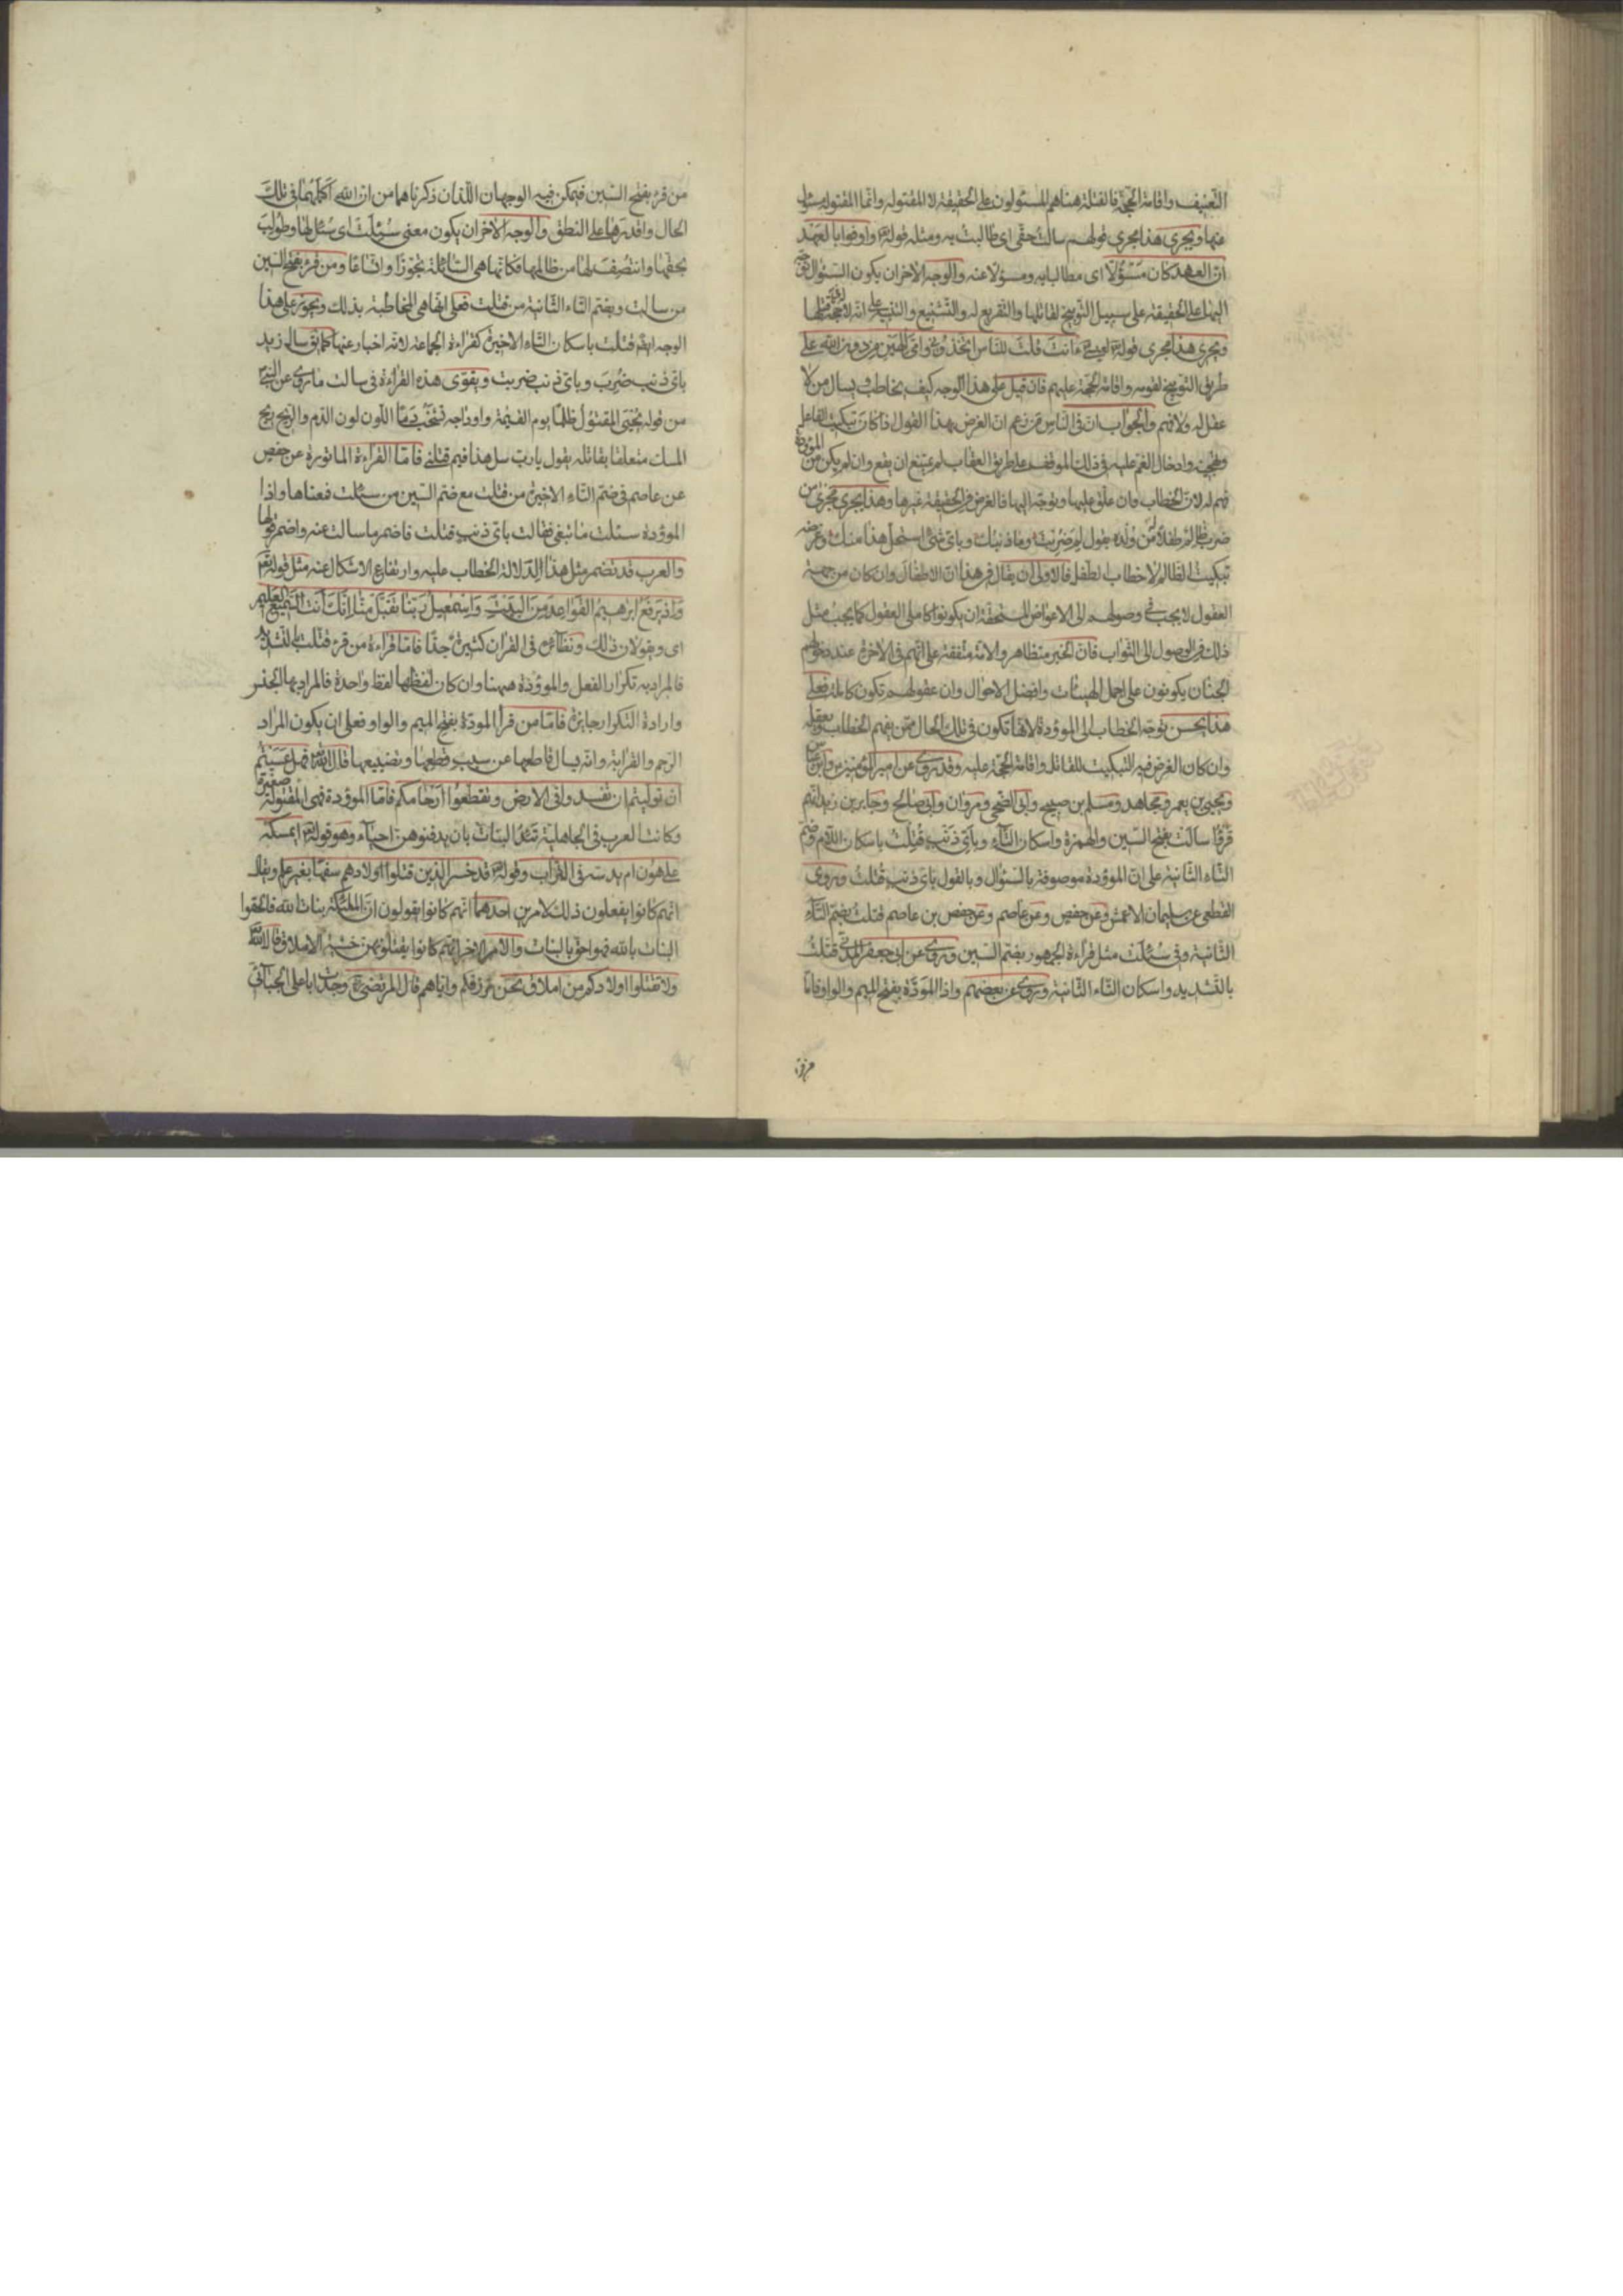 التعنيف واقامة الحجة فالقتلة ههنا هم المسئولون على الحقيقة لا المقتولة وانما المقتولة مسئول
عنها ويجرى هذا مجرى قولهم سالت حقى اى طالبت به ومثله قوله تع واوفوا بالعهد
ان العهد كان مسؤلا اى مطالبا به ومسؤلا عنه والوجه الاخر ان يكون السؤال توجه
اليها على الحقيقة على سبيل التوبيخ لقاتلها والتقريع له والتشنيع والتنبيه على انه لا حجة له فى قتلها
ويجرى هذا مجرى قوله تع لعيسى ءانت قلت للناس اتخذونى وامى الهين من دون الله على
طريق التوبيخ لقومه واقامة الحجة عليهم فان قيل على هذا الوجه كيف يخاطب ويسال من لا
عقل له ولا فهم والجواب ان فى الناس من زعم ان الغرض بهذا القول اذا كان تبكيت الفاعل
وتهجينه وادخال الغم عليه فى ذلك الموقف على طريق العقاب لم يمتنع ان يقع وان لم يكن من الموؤدة
فهم له لان الخطاب وان علق عليها وتوجه اليها فالغرض فى الحقيقة غيرها وهذا يجرى مجرى من
ضرب ظالم طفلا من ولده يقول لم ضربت وما ذنبك وباى شئ استحل هذا منك وغرضه
تبكيت الظالم لا خطاب الطفل فالاولى ان يقال فى هذا ان الاطفال وان كان من جهة
العقول لا يجب فى وصولهم الى الاعواض المستحقة ان يكونوا كاملى العقول كما يجب مثل
ذلك فى الوصول الى الثواب فان الخبر متظاهر والامة متفقة على انهم فى الاخرة عند دخولهم
الجنان يكونون على اجمل الهيئات وافضل الاحوال وان عقولهم تكون كاملة فعلى
هذا يحسن توجه الخطاب الى الموؤدة لانها تكون فى تلك الحال ممن يفهم الخطاب ويعقله
وان كان الغرض فيه التبكيت للقاتل واقامة الحجة عليه وقد روى عن امير المؤمنين وابن عباس
ويحيى بن يعمر ومجاهد ومسلم بن صبيح وابى الضحى ومروان وابى صالح وجابر بن زيد انهم
قرؤا سالت بفتح السين والهمزة واسكان التاء وباى ذنب قتلت باسكان اللام وضم
التاء الثانية على ان الموؤدة موصوفة بالسؤال وبالقول باى ذنب قتلت وروى
القطعى عن سليمان الاعمش وعن حفص وعن عاصم وعن حفص بن عاصم قتلت بضم التاء
الثانية وفى سئلت مثل قراءة الجمهور بضم السين وروى عن ابى جعفر المدنى قتلت
بالتشديد واسكان التاء الثانية وروى عن بعضهم واذا الموَدّة بفتح الميم والواو فاما
من قرء
من قرء بفتح السين فيمكن فيه الوجهان اللذان ذكرناهما من ان الله اكملها فى تلك
الحال واقدرها على النطق والوجه الاخر ان يكون معنى سئلت اى سُئل لها وطولب
بحقها وانتصف لها من ظالمها فكانها هى السائلة تجوزا واتساعا ومن قرء بفتح السين
من سالت وبضم التاء الثانية من قتلت فعلى انها هى المخاطبة بذلك ويجوز على هذا
الوجه ايضا قتلت باسكان التاء الاخيرة كقراءة الجماعة لانه اخبار عنها كما يق سال زيد
باى ذنب ضُرِبَ وباى ذنب ضربت ويقوى هذه القراءة فى سالت ما روى عن النبى
من قوله يجئ المقتول ظلما يوم القيمة واوداجه تشخب دما اللون لون الدم والريح ريح
المسك متعلقا بقاتله يقول يا رب سل هذا فيم قتلنى فاما القراءة الماثورة عن حفص
عن عاصم فى ضم التاء الاخيرة من قتلت مع ضم السين من سئلت فمعناها واذا
الموؤدة سئلت ما تبغى فقالت باى ذنب قتلت فاضمر ما سالت عنه واضمر قولها
والعرب قد تضمر مثل هذا لدلالة الخطاب عليه وارتفاع الاشكال عنه مثل قوله تع
واذ يرفع ابرهيم القواعد من البيت واسمعيل ربنا تقبل منا انك انت السميع العليم
اى ويقولان ذلك ونظائره فى القران كثيرة جدا فاما قراءة من قرء قتلت بالتشديد
فالمراد به تكرار الفعل والموؤدة ههنا وان كان لفظها لفظ واحدة فالمراد بها الجنس
وارادة التكرار جايزة فاما من قرأ المودة بفتح الميم والواو فعلى ان يكون المراد
الرحم والقرابة وانه يسال قاطعها عن سبب قطعها وتضييعها قال الله تع فهل عسيتم
ان توليتم ان تفسدوا فى الارض وتقطعوا ارحامكم فاما الموؤدة فهى المقتولة صغيرة
وكانت العرب فى الجاهلية تئد البنات بان يدفنوهن احياء وهو قوله تع ايمسكه
على هون ام يدسه فى التراب وقوله تع قد خسر الذين قتلوا اولادهم سفها بغير علم ويقال
انهم كانوا يفعلون ذلك لامرين احدهما انهم كانوا يقولون ان الملئكة بنات الله فالحقوا
البنات بالله فهو احق بالبنات والامر الاخر انهم كانوا يقتلونهن خشية الاملاق قال الله تع
ولا تقتلوا اولادكم من املاق نحن نرزقكم واياهم قال المرتضى وجدت ابا على الجبائى